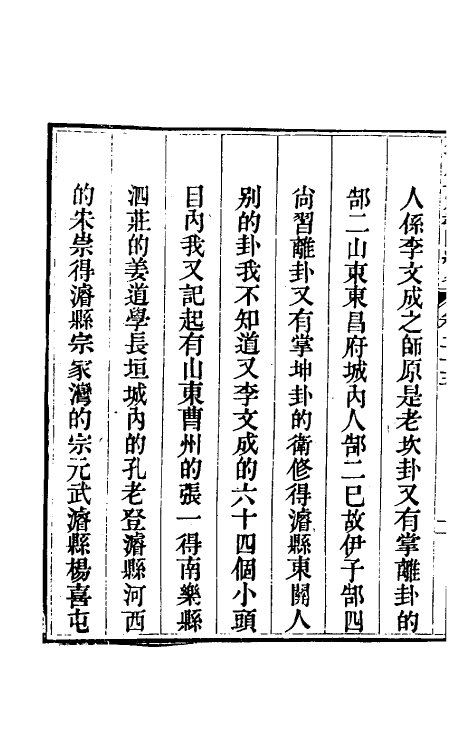 人係李文成之師原是老坎卦又有掌離卦的
郜二山東東昌府城內人郜二已故伊子郜四
尙習離卦又有掌坤卦的衛修得濬縣東關人
别的卦我不知道又李文成的六十四個小頭
目內我又記起有山東曹州的張一得南樂縣
泗莊的姜道學長垣城內的孔老登濬縣河西
的朱崇得濬縣宗家灣的宗元武濬縣楊喜屯